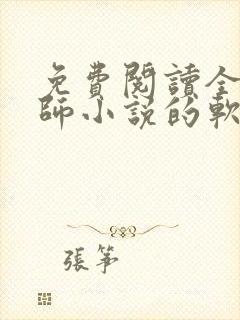 免費閱讀全
師小說的軟
張箏